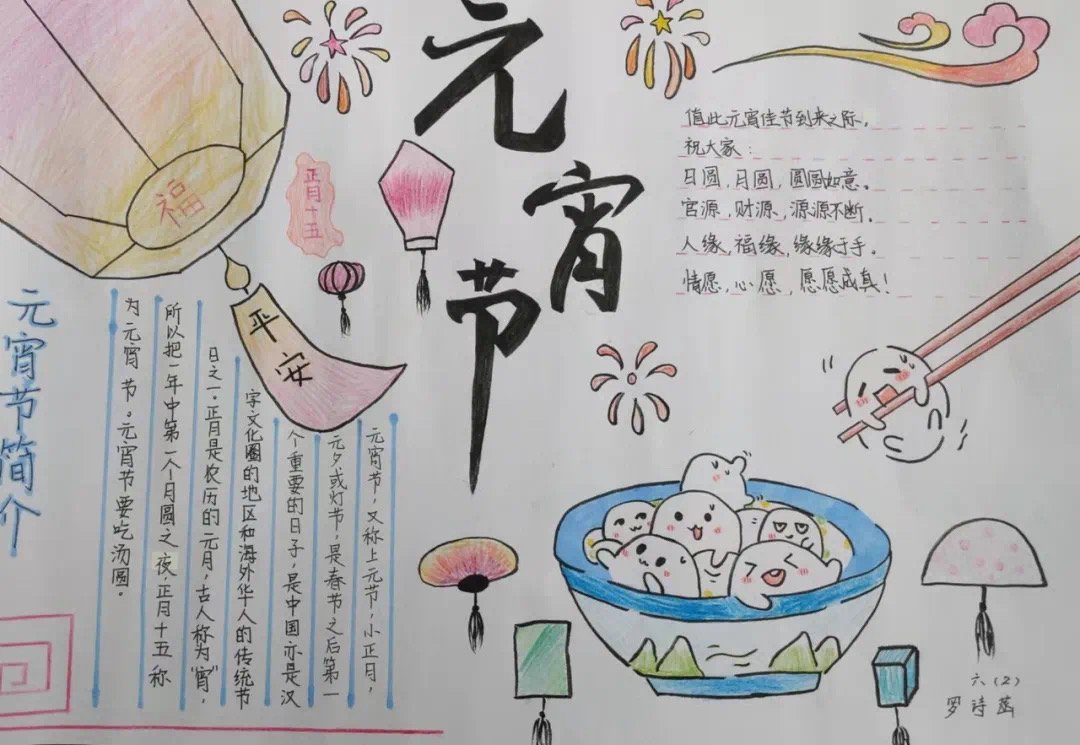 元宵节
福
平安
正月十五
值此元宵佳节到来之际,
祝大家:
日圆,月圆,圆圆如意。
官源,财源,源源不断。
人缘,福缘,缘缘于手。
情愿,心愿,愿愿成真!
元宵节简介
元宵节,又称上元节,小正月,
元夕或灯节,是春节之后第一
个重要的日子,是中国亦是汉
字文化圈的地区和海外华人的传统节
日之一。正月是农历的元月,古人称为“宵”,
所以把一年中第一个月圆之夜,正月十五称
为元宵节。元宵节要吃汤圆。
六(2)
罗诗菡